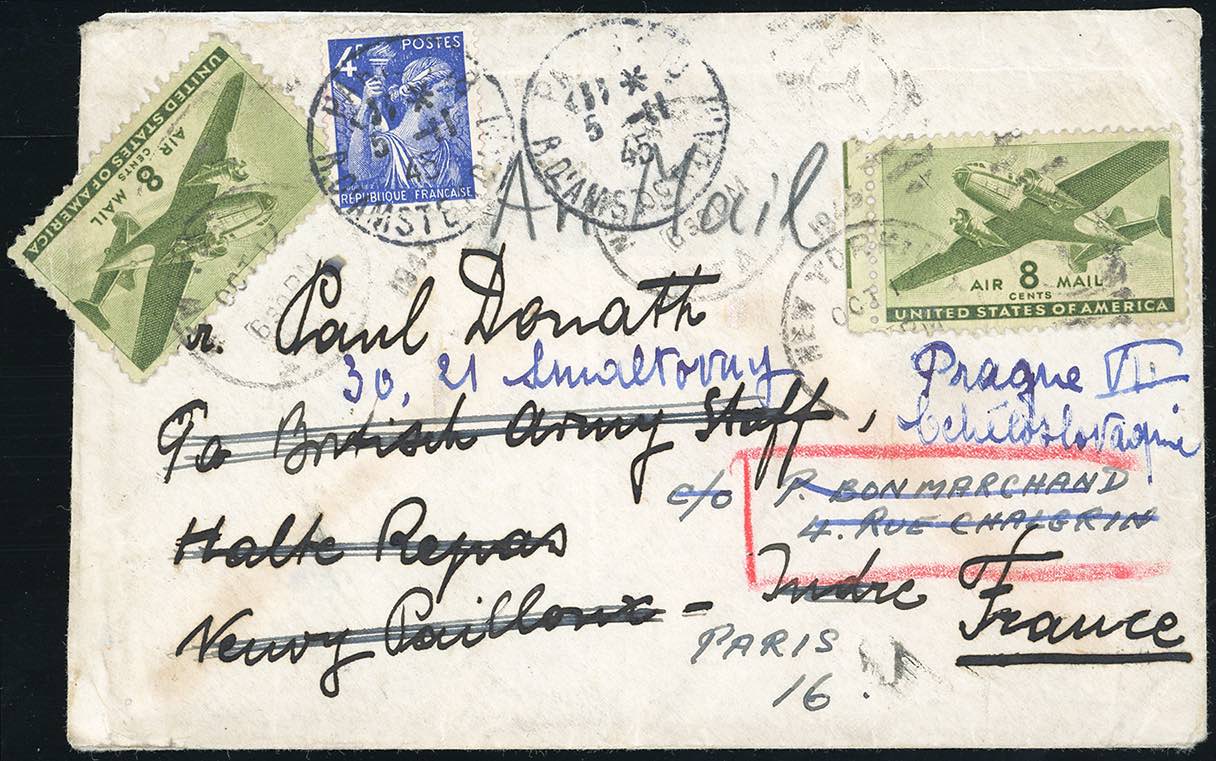 UNITED STATES OF AMERICA
AIR MAIL
8
CENTS
4F POSTES
RÉPUBLIQUE FRANÇAISE
R. D'AMSTE
5 -11
45
R. D'AMST
Air Mail
NEW YORK
OCT
1945
AIR 8 MAIL
CENTS
UNITED STATES OF AMERICA
r. Paul Donath
30, 21 Smaltovny Prague VII
Tchékoslovaquie
c/o British Army Staff,
c/o P. BONMARCHAND
4. RUE CHALGRIN
Halte Repas
Neuvy Pailloux - Indre France
PARIS
16.